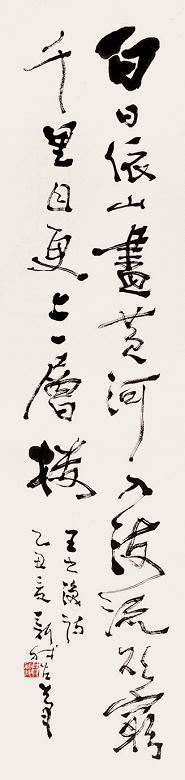 白日依山盡黄河入海流欲窮
千里目更上一層樓
王之渙詩
乙丑夏